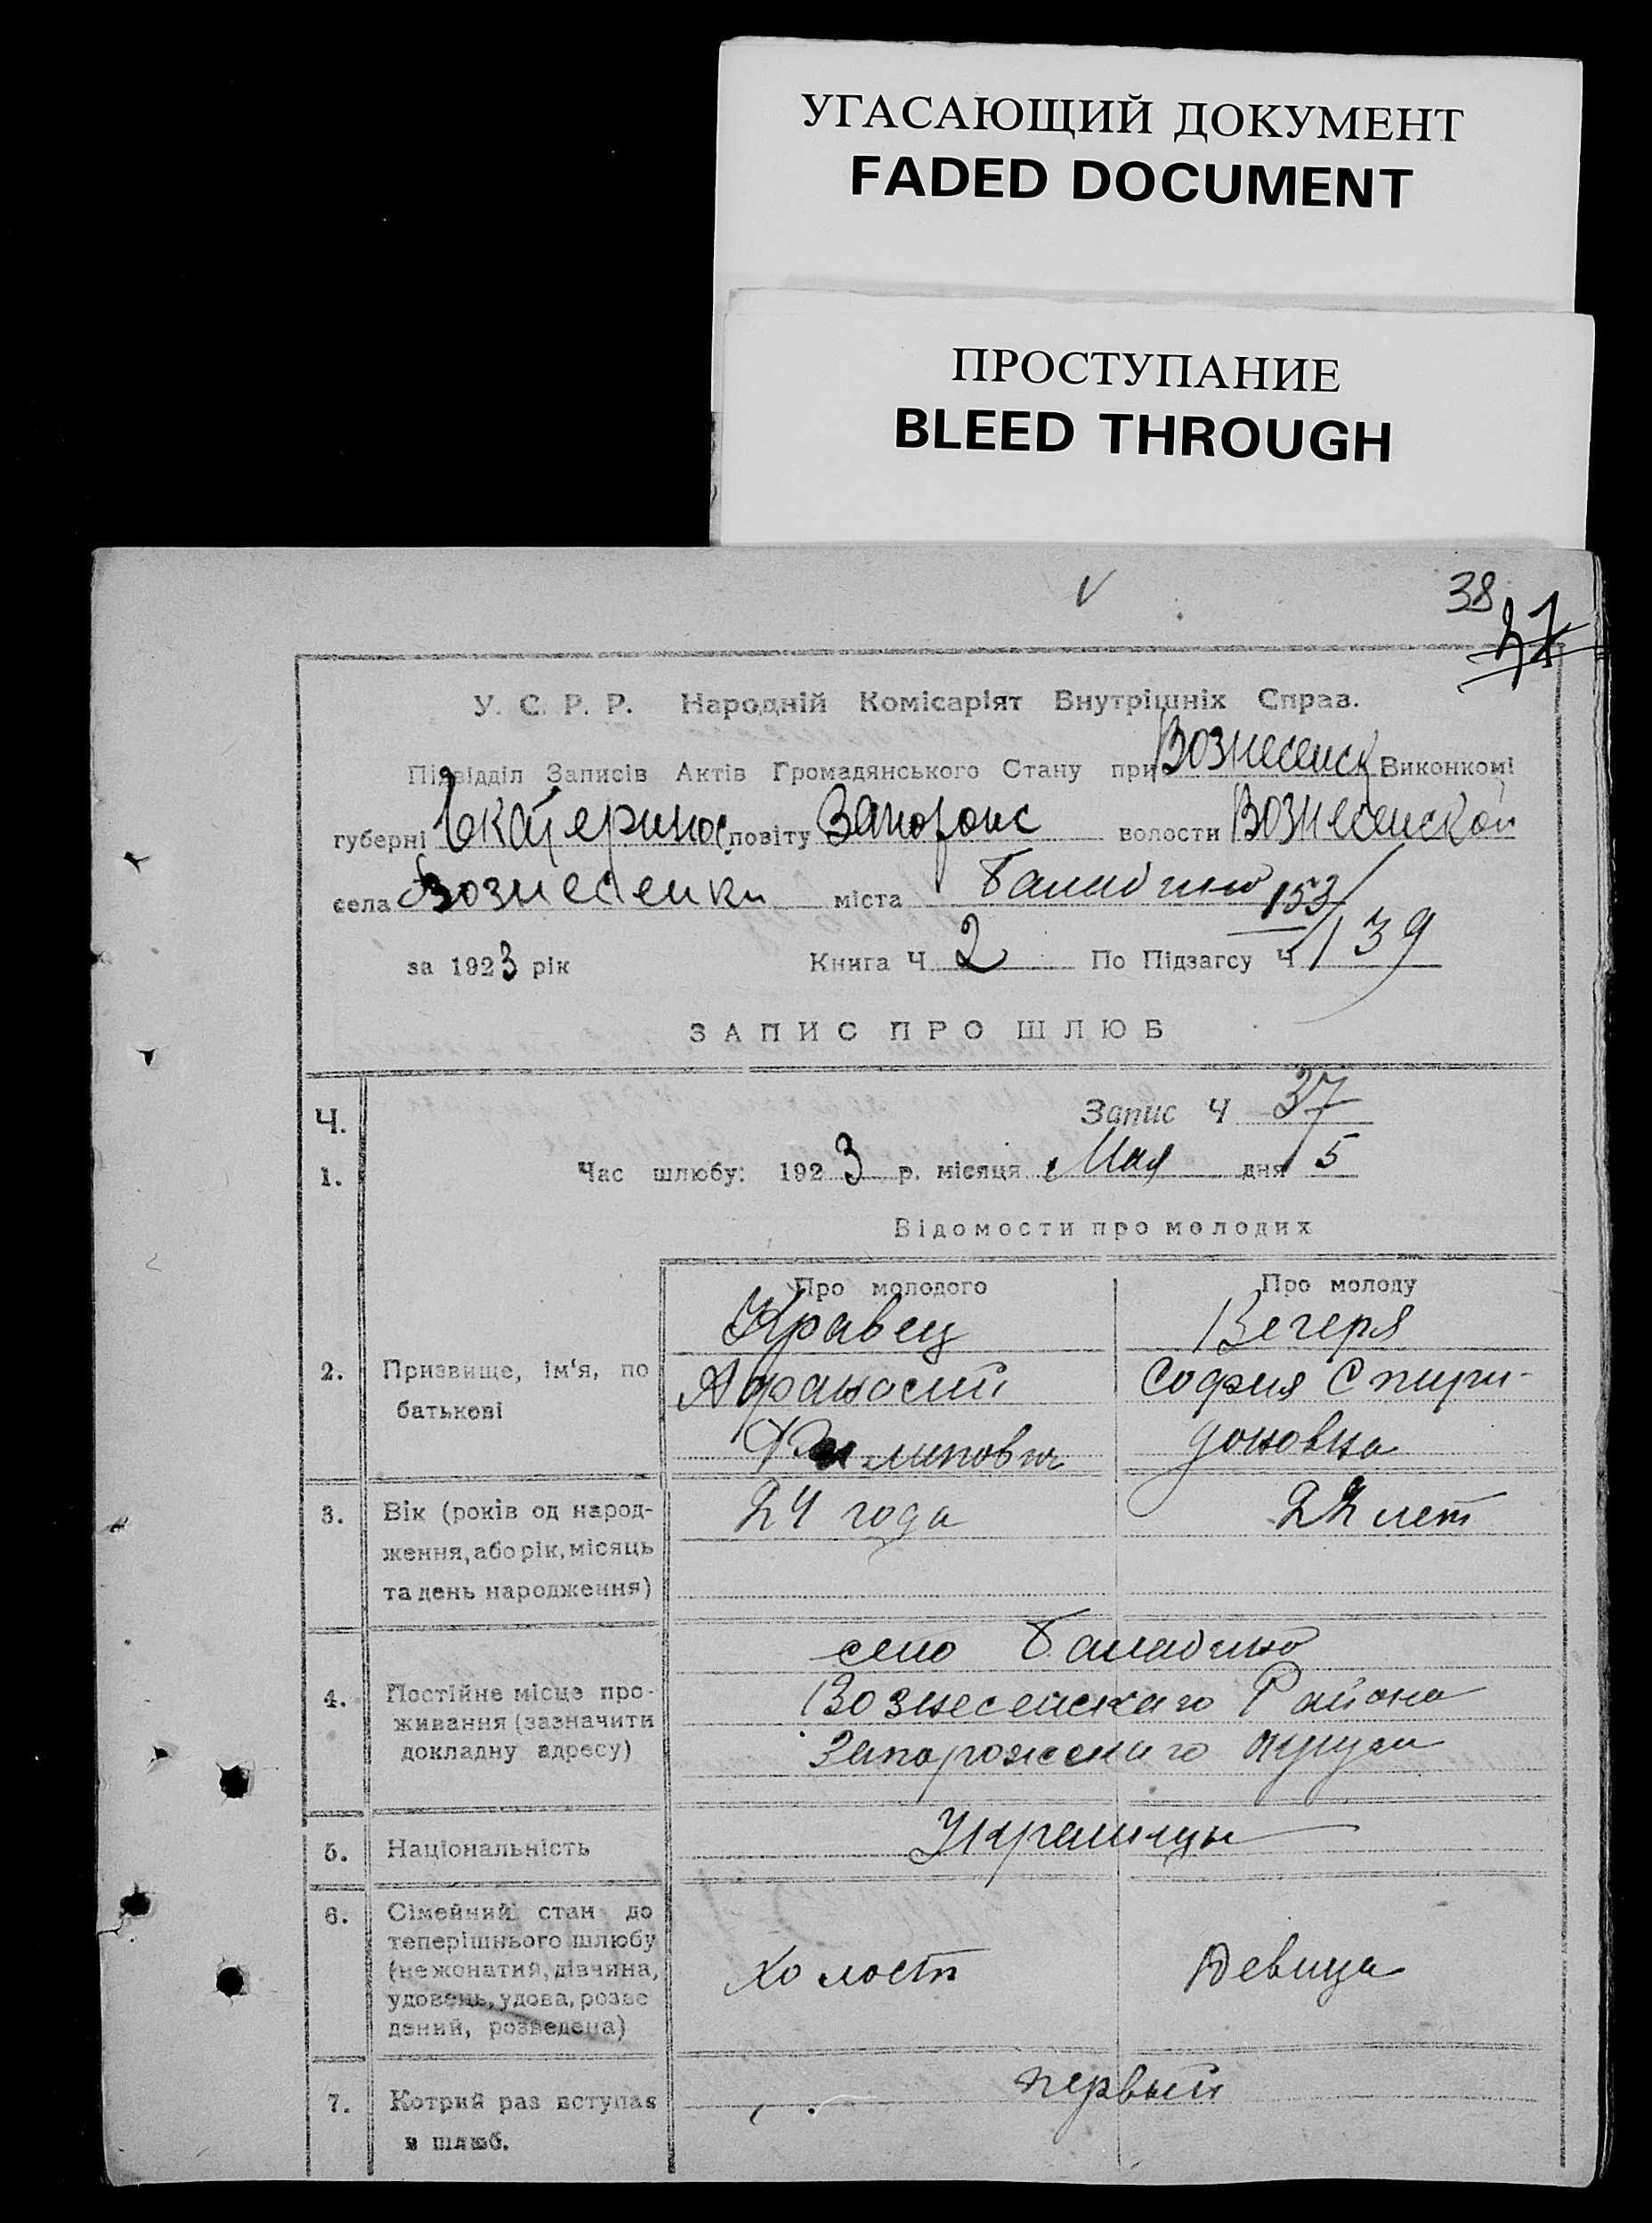 УГАСАЮЩИЙ ДОКУМЕНТ
FADED DOCUMENT
ПРОСТУПАНИЕ
BLEED THROUGH
38
У. С. Р. Р. Народній Комісаріят Внутрішніх Справ.
Підвідділ Записів Актів Громадянського Стану при Вознесенск Виконкомі
губерні Екатеринос повіту Запорож волости Вознесенской
села Вознесенки міста Балабино
153/
за 1923 рік Книга Ч 2 По Підзагсу Ч 139
ЗАПИС ПРО ШЛЮБ
Ч. Запис Ч 37
1. Час шлюбу: 1923 р. місяця Мая дня 5
Відомости про молодих
Про молодого Про молоду
Кравец Вечеря
2. Призвище, ім'я, по Афанасий София Спири-
батькові Филипович доновна
3. Вік (років од народ- 24 года 22 лет
ження, або рік, місяць
та день народження)
село Балабино
4. Постійне місце про- Вознесенскаго Района
живання (зазначити
докладну адресу) Запорожскаго округи
5. Національність Украинцы
6. Сімейний стан до
теперішнього шлюбу
(нежонатий, дівчина, холост девица
удовень, удова, розве
дений, розведена)
7. Котрий раз вступає первый
в шлюб.